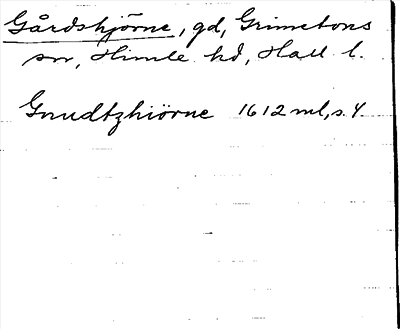 Gårdshjörne, gd, Grimetons
sn, Himle hd, Hall l.
Gnudtzhiörne 1612 ml, s. 4.